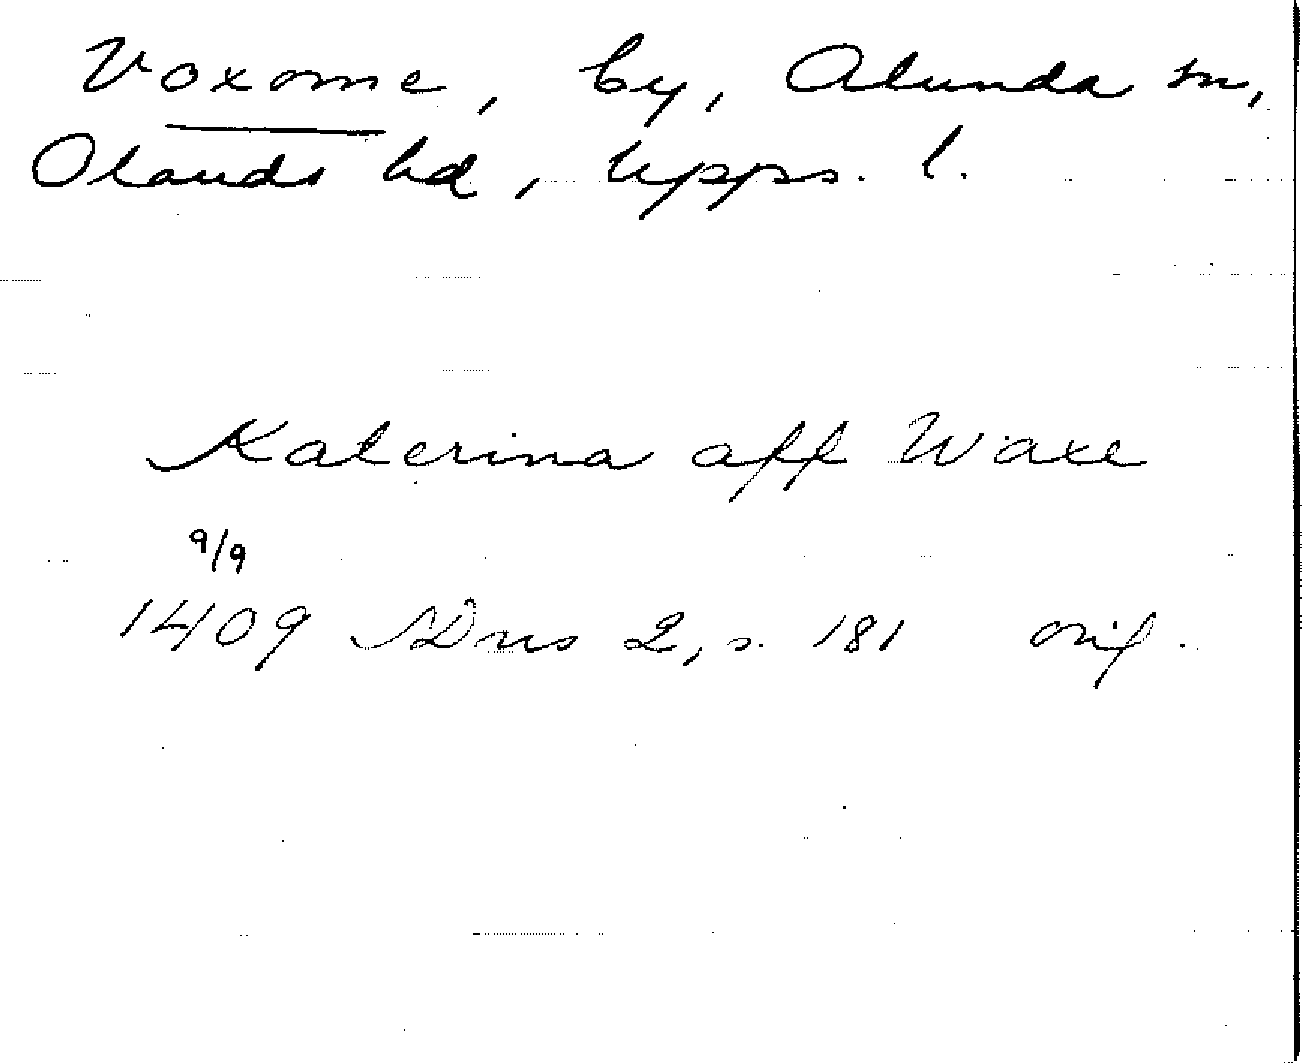 Voxome, by, Alunda sn,
Olands hd, Upps. l.
Katerina aff Waxe
9/9
1409 SDns 2, s. 181 orig.